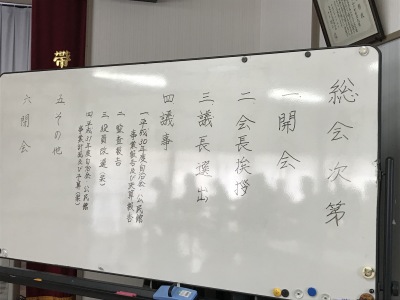 総会次第
一 開会
二 会長挨拶
三 議長選出
四 議事
一. 平成30年度自治会 公民館
事業報告及び決算報告
二. 監査報告
三. 役員改選(案)
四. 平成31年度自治会 公民館
事業計画及び予算(案)
五 その他
六 閉会